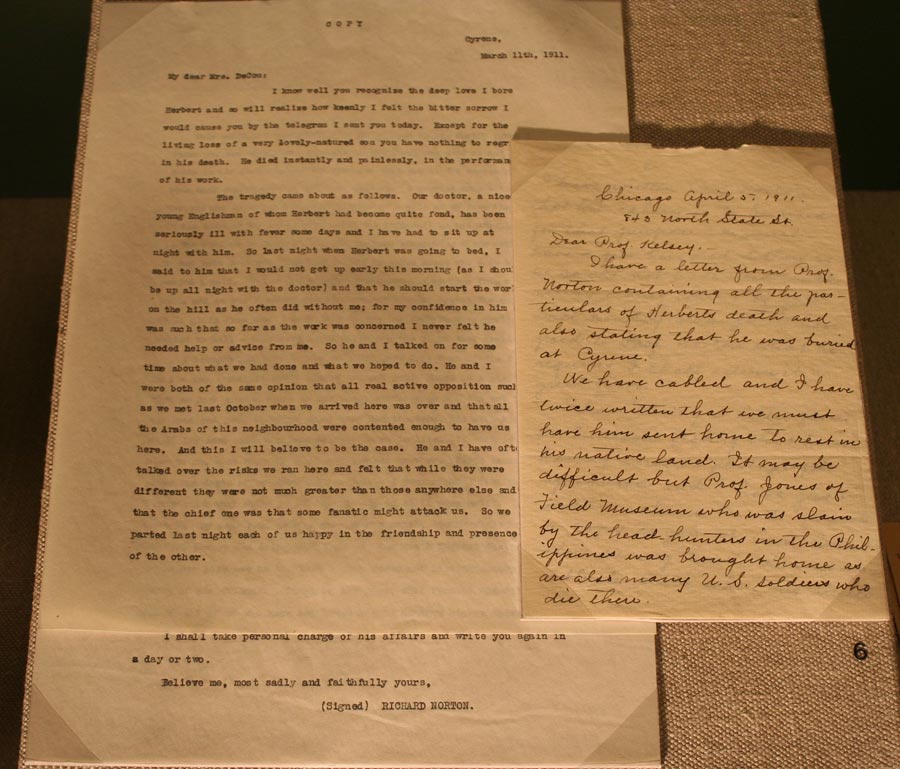 COPY
Cyrene,
March 11th, 1911.
My dear Mrs. DeCou:
I know well you recognize the deep love I bore
Herbert and so will realize how keenly I felt the bitter sorrow I
would cause you by the telegram I sent you today. Except for the
living loss of a very lovely-natured son you have nothing to regr
in his death. He died instantly and painlessly, in the performan
of his work.
The tragedy came about as follows. Our doctor, a nice
young Englishman of whom Herbert had become quite fond, has been
seriously ill with fever some days and I have had to sit up at
night with him. So last night when Herbert was going to bed, I
said to him that I would not get up early this morning (as I shou
be up all night with the doctor) and that he should start the wor
on the hill as he often did without me; for my confidence in him
was such that so far as the work was concerned I never felt he
needed help or advice from me. So he and I talked on for some
time about what we had done and what we hoped to do. He and I
were both of the same opinion that all real active opposition suc
as we met last October when we arrived here was over and that all
the Arabs of this neighbourhood were contented enough to have us
here. And this I will believe to be the case. He and I have oft
talked over the risks we ran here and felt that while they were
different they were not much greater than those anywhere else and
that the chief one was that some fanatic might attack us. So we
parted last night each of us happy in the friendship and presence
of the other.
I shall take personal charge of his affairs and write you again in
a day or two.
Believe me, most sadly and faithfully yours,
(Signed) RICHARD NORTON.
Chicago April 5, 1911.
843 North State St.
Dear Prof. Kelsey.
I have a letter from Prof.
Norton containing all the par-
ticulars of Herberts death and
also stating that he was buried
at Cyrene.
We have cabled and I have
twice written that we must
have him sent home to rest in
his native land. It may be
difficult but Prof. Jones of
Field Museum who was slain
by the head-hunters in the Phil-
ippines was brought home as
are also many U. S. soldiers who
die there.
6